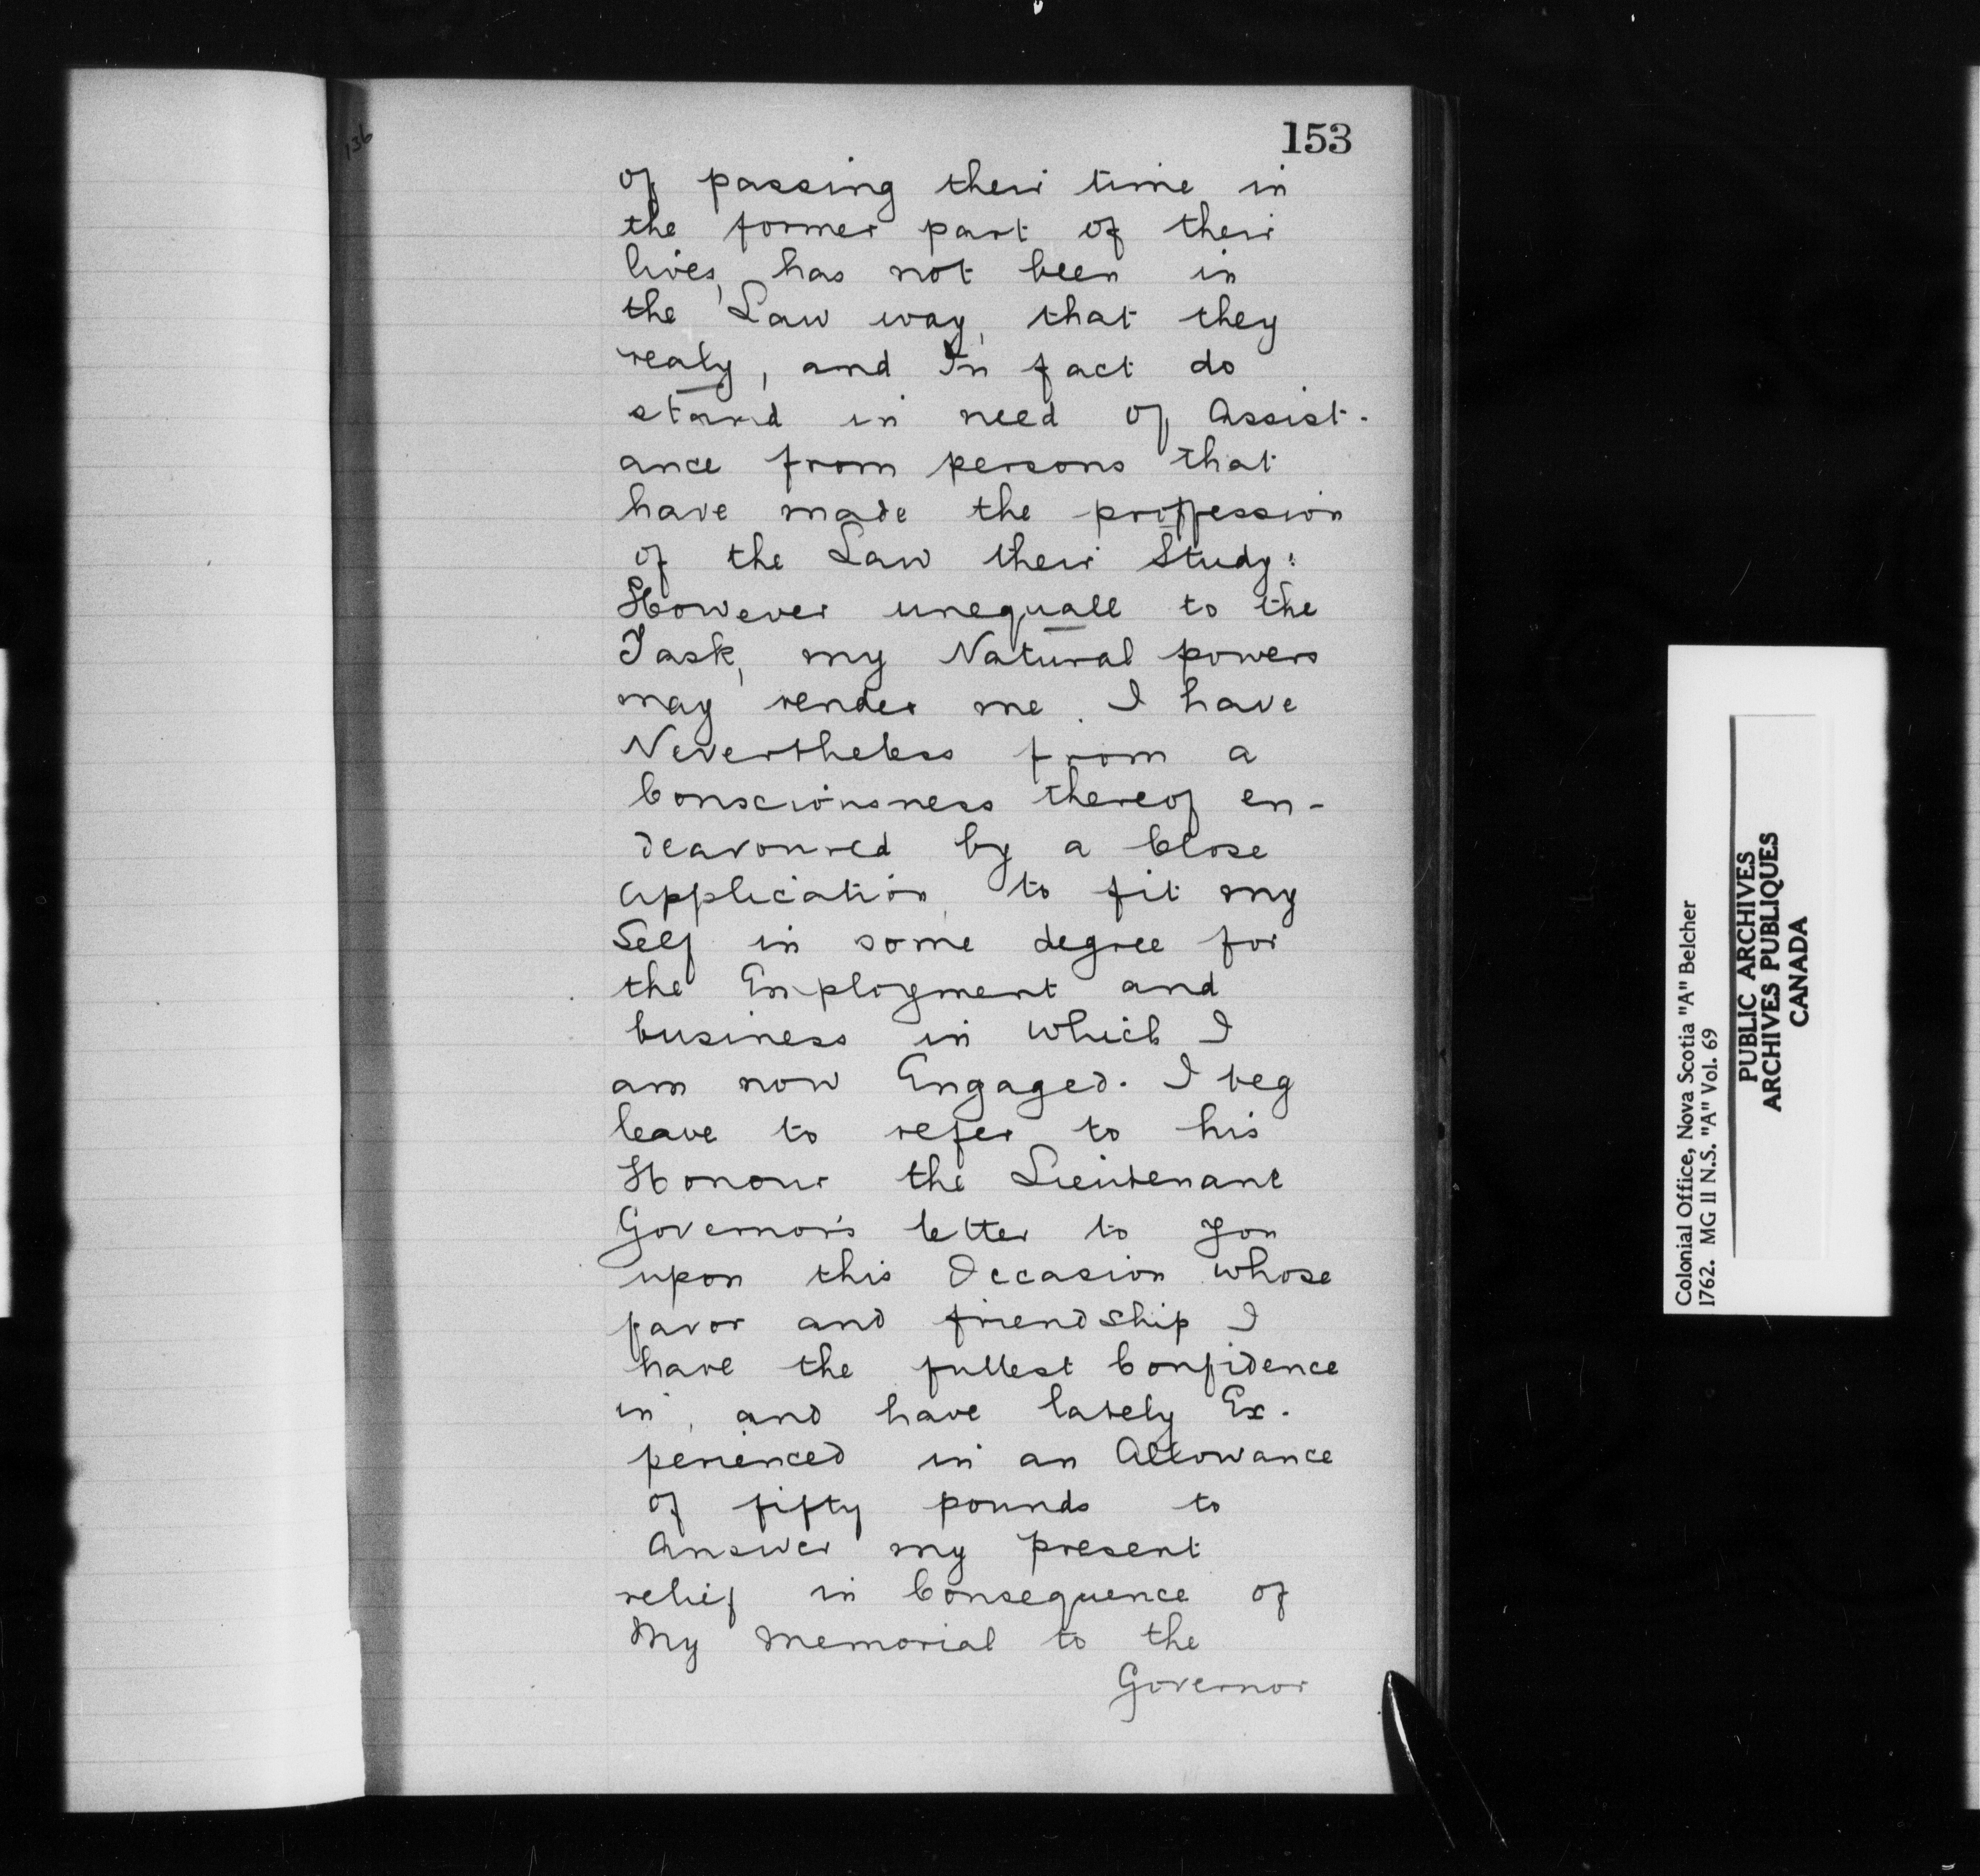 136
153
of passing their time in
the former part of their
lives, has not been in
the Law way, that they
realy, and In fact do
stand in need of Assist-
ance from persons that
have made the proffession
of the Law their Study:
However unequall to the
Task, my Natural powers
may render me. I have
Nevertheless from a
Consciousness thereof en-
deavoured by a Close
Application, to fit my
Self in some degree for
the Employment and
business in which I
am now Engaged. I beg
leave to refer to his
Honour the Lieutenant
Governor's letter to You
upon this Occasion whose
favor and friendship I
have the fullest Confidence
in, and have lately Ex-
perienced in an Allowance
of fifty pounds to
Answer my present
relief in Consequence of
My Memorial to the
Governor
Colonial Office, Nova Scotia "A" Belcher
1762. MG II N.S. "A" Vol. 69
PUBLIC ARCHIVES
ARCHIVES PUBLIQUES
CANADA